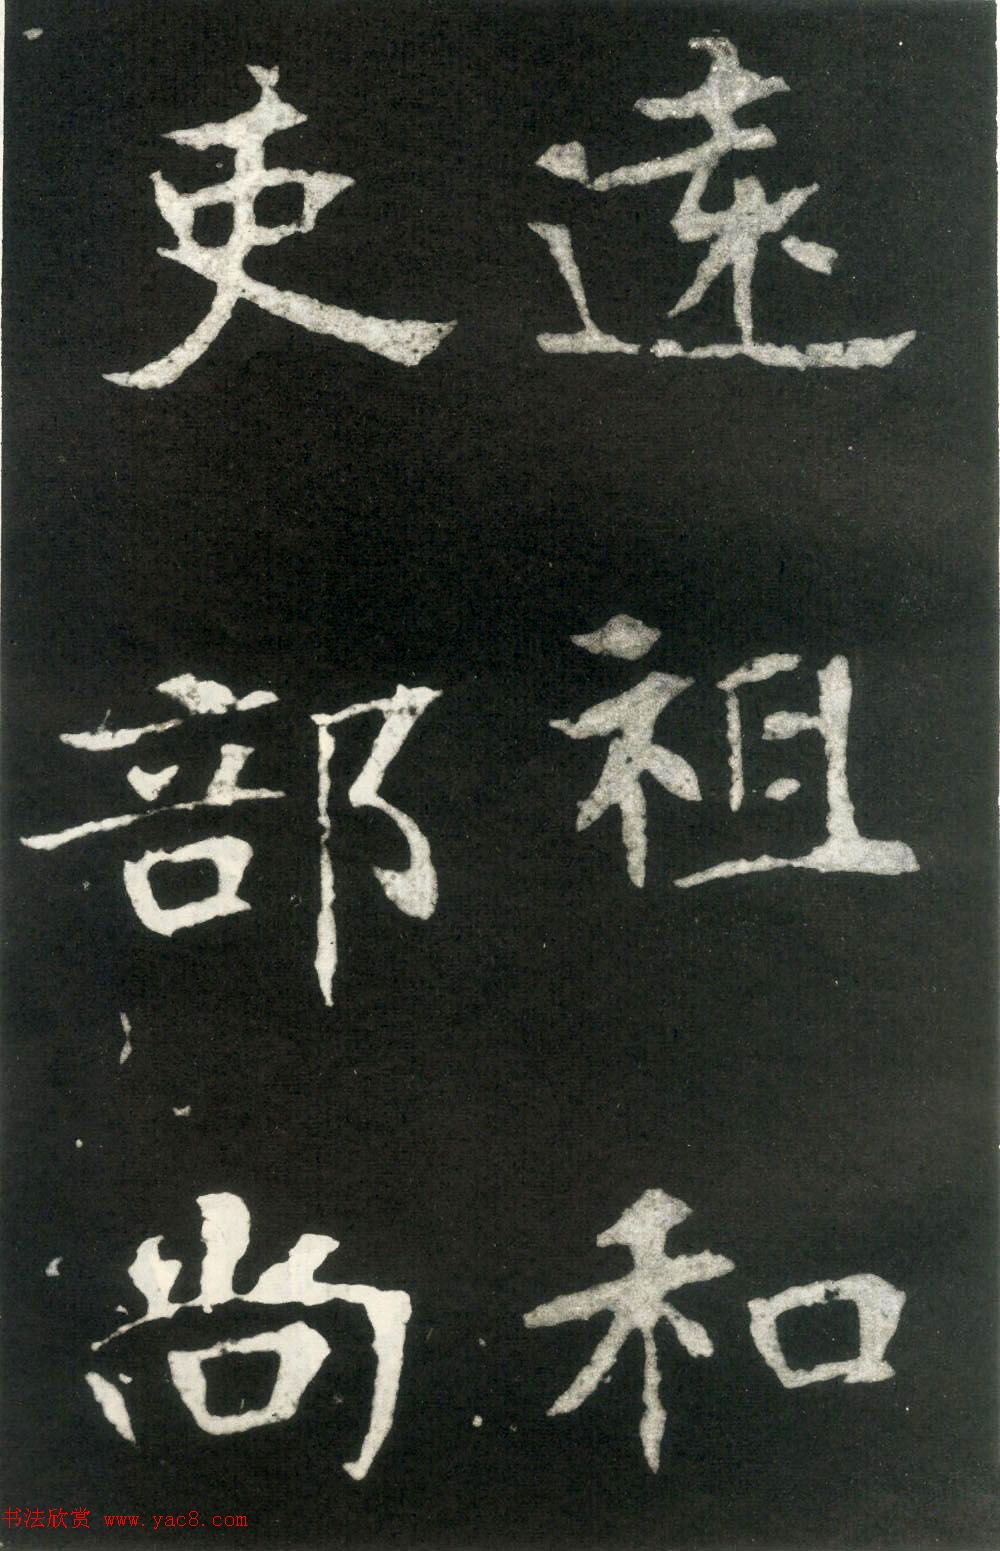 遠祖和
吏部尚
书法欣赏 www.yac8.com